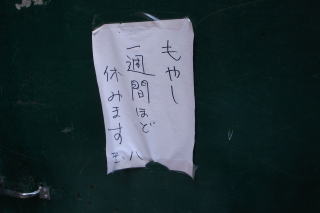 もやし
一週間ほど
休みます